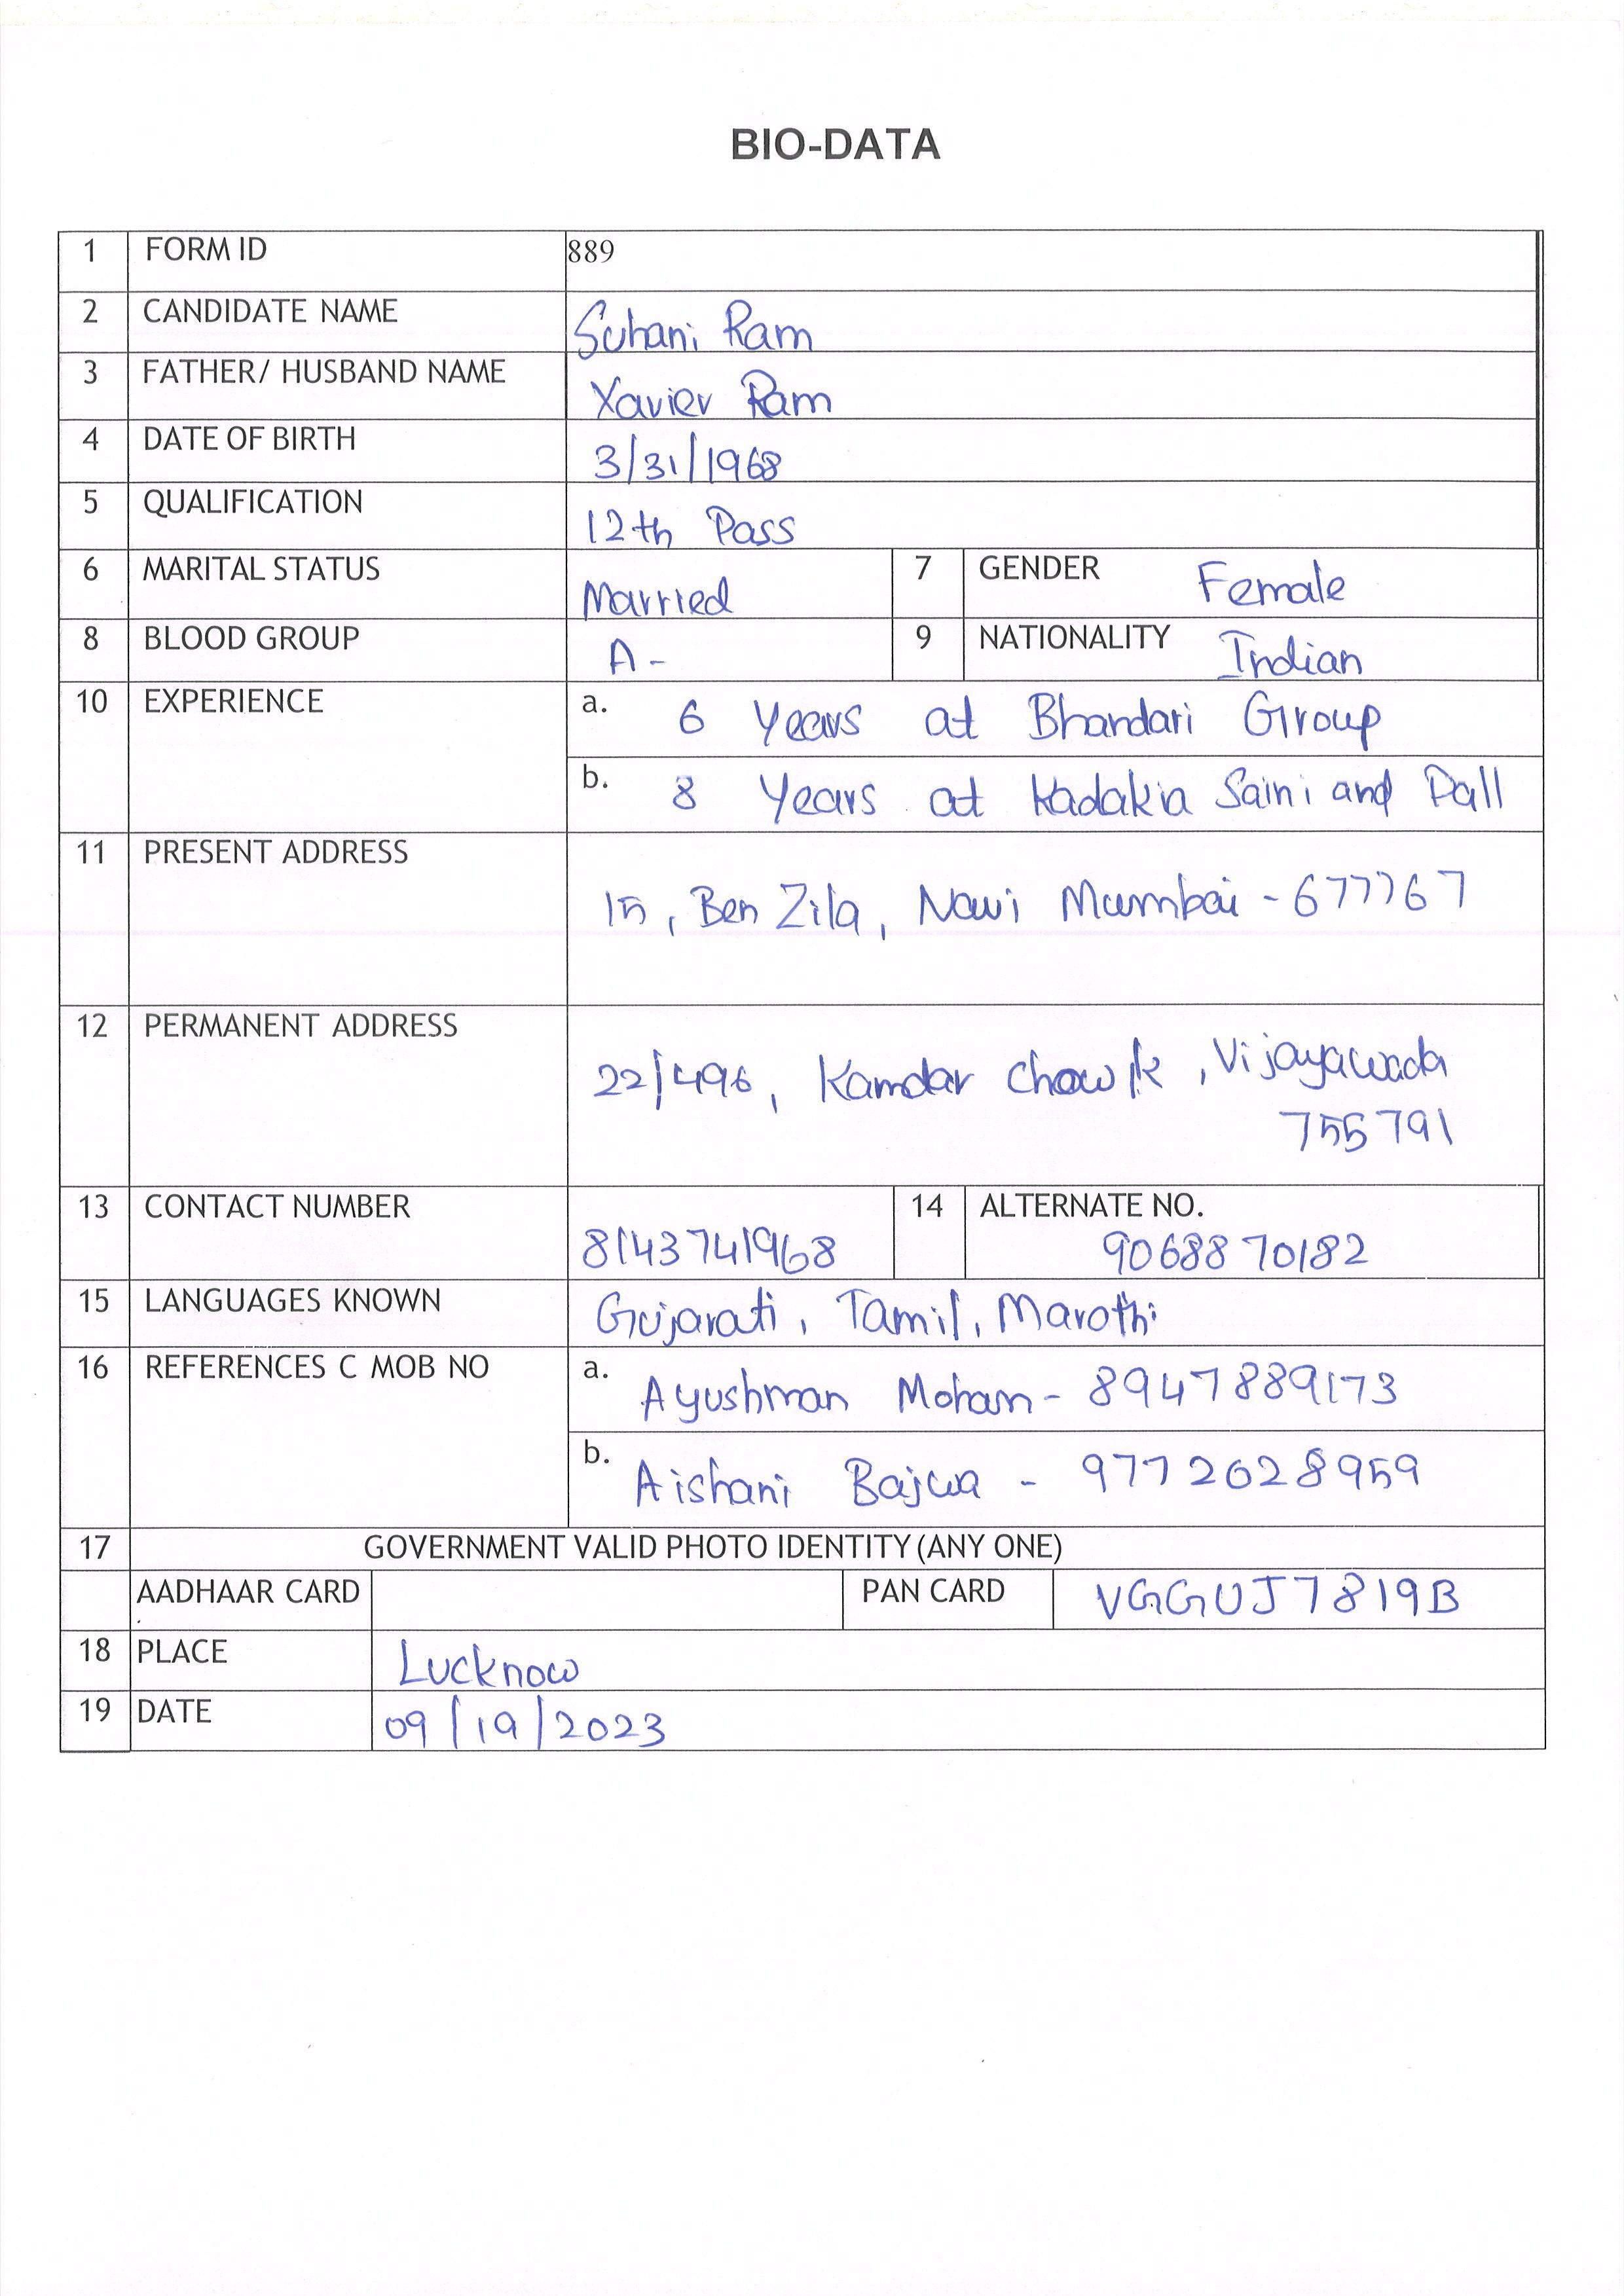 BIO-DATA
1 FORM ID 889
2 CANDIDATE NAME Suhani Ram
3 FATHER/ HUSBAND NAME Xavier Ram
4 DATE OF BIRTH 3/31/1968
5 QUALIFICATION 12th Pass
6 MARITAL STATUS Married 7 GENDER Female
8 BLOOD GROUP A- 9 NATIONALITY Indian
10 EXPERIENCE a. 6 Years at Bhandari Group
b. 8 Years at Kadakia Saini and Dall
11 PRESENT ADDRESS 15, Ben Zila, Navi Mumbai - 677767
12 PERMANENT ADDRESS 22/496, Kamdar Chowk, Vijayawada
755791
13 CONTACT NUMBER 8143741968 14 ALTERNATE NO. 9068870182
15 LANGUAGES KNOWN Gujarati, Tamil, Marathi
16 REFERENCES C MOB NO a. Ayushman Moham - 8947889173
b. Aishani Bajwa - 9772028959
17 GOVERNMENT VALID PHOTO IDENTITY (ANY ONE)
AADHAAR CARD PAN CARD VGGUJ7819B
18 PLACE Lucknow
19 DATE 09/19/2023